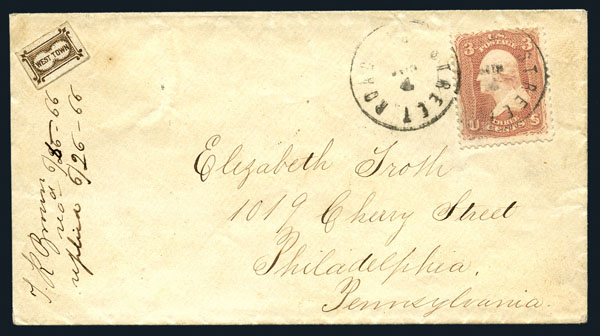 WEST TOWN
STREET ROAD
U.S. POSTAGE
3 3
U S
CENTS
STREET
T. R. Brown
rec'd 6/25-66
replied 6/26-66
Elizabeth Troth
1019 Cherry Street
Philadelphia.
Pennsylvania.